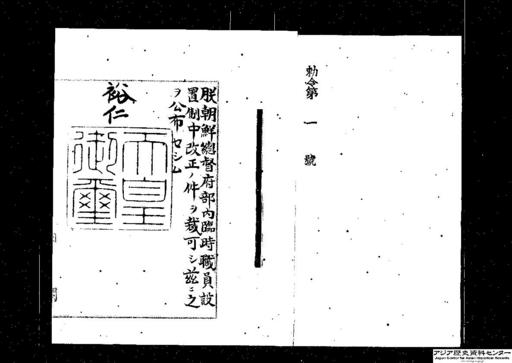 勅令第一號
朕朝鮮總督府部內臨時職員設
置制中改正ノ件ヲ裁可シ茲ニ之
ヲ公布セシム
裕仁
天皇
御璽
アジア歴史資料センター
Japan Center for Asian Historical Records